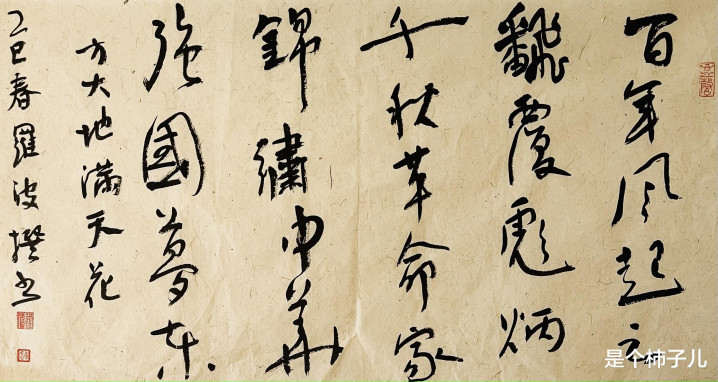 百年风起云
飜覆彪炳
千秋革命家
錦繡中華
強國夢东
方大地满天花
乙巳春羅波撰书
是个柿子儿